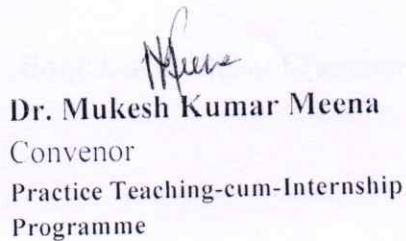 Dr. Mukesh Kumar Meena
Convenor
Practice Teaching-cum-Internship
Programme